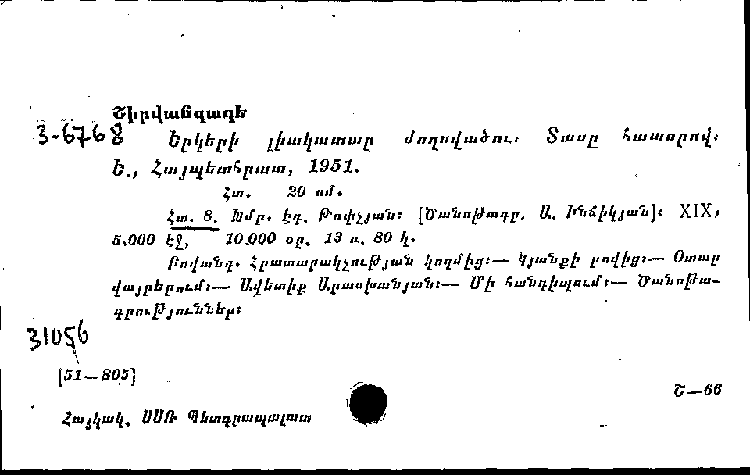 Շիրվանզադե
3-6768 Երկերի լիակատար ժողովածու։ Տասը հատորով։
Ե., Հայպետհրատ, 1951.
Հտ. 20 սմ.
Հտ. 8. Խմբ. Էդ. Թոփչյան։ [Ծանոթագր. Ա. Ինճիկյան]։ XIX,
5.000 էջ, 10.000 օր. 13 ռ. 80 կ.
Բովանդ. Հրատարակչության կողմից։— Կյանքի բովից։— Օտար
վայրերում։— Ավետիք Արասխանյան։— Մի հանդիպում։— Ծանոթա-
գրություններ։
31056
[51—805]
Շ—66
Հայկակ. ՍՍՌ Պետգրապալատ